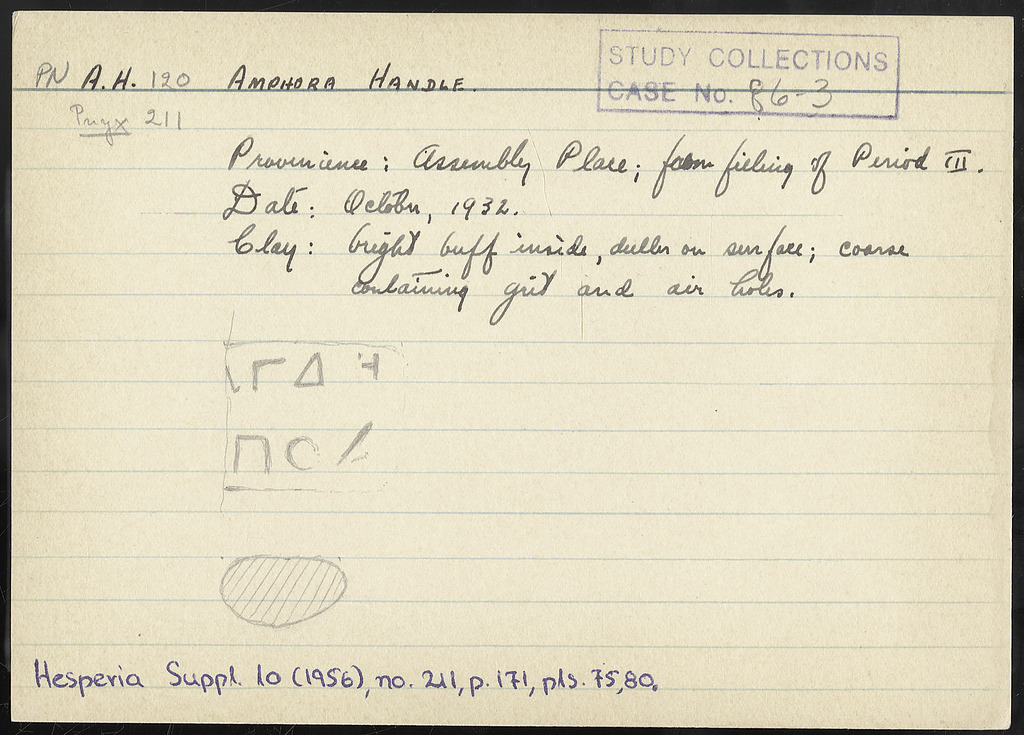 STUDY COLLECTIONS
CASE No. 86-3
PN A.H. 120 AMPHORA HANDLE.
Pnyx 211
Provenience: Assembly Place; from filling of Period III.
Date: October, 1932.
Clay: bright buff inside, duller on surface; coarse
containing grit and air holes.
ΓΔ
ΠΟ
Hesperia Suppl. 10 (1956), no. 211, p. 171, pls. 75, 80.